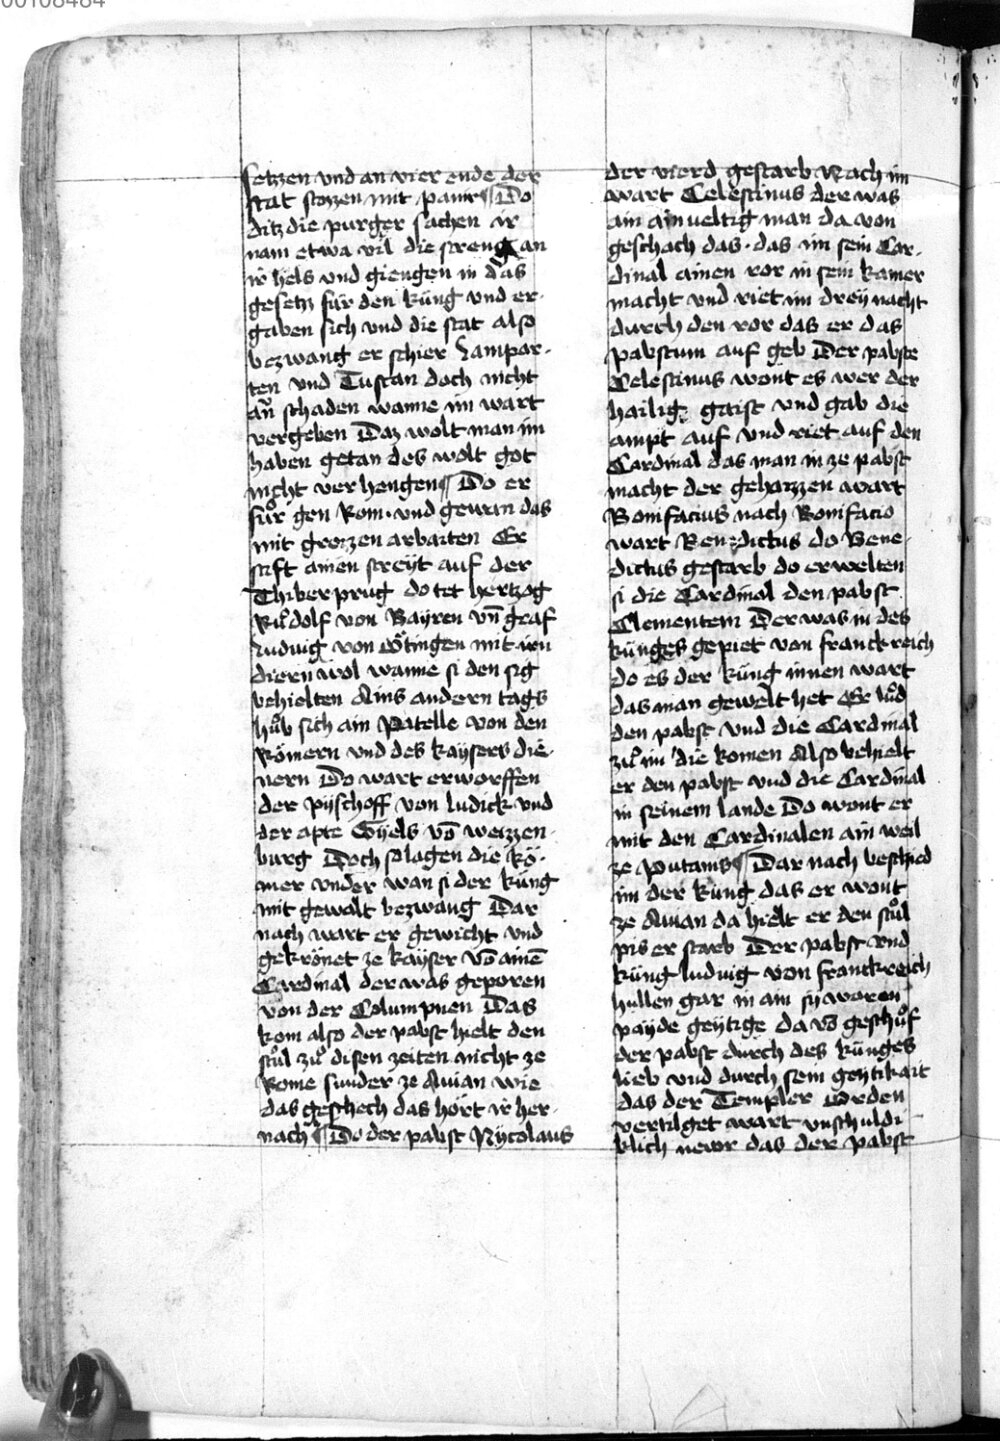 00108484
setzen vnd an vier ende der
stat stozzen mit panir ¶ Do
ditz die purger sachen ir
nam etwa vil die streng an
ir hels vnd giengen in das
gesetz für den küng vnd er-
gaben sich vnd die stat also
bezwang er schier Lampar-
ten vnd Tuscan doch nicht
an schaden wanne im wart
vergeben Daz wolt man im
haben getan des wolt got
nicht verhengen ¶ Do er
fuͦr gen Rom vnd gewan das
mit grozzen arbaiten Er
stift ainen streyt auf der
Thiber prug do tet hertzog
Ruͦdolf von Bayren vn̄ graf
Ludwig von Ötingen mit irn
diern wol wanne si den sig
behielten Ains andern tags
huͦb sich ain Patelle von den
Römern vnd des kaysers die-
nern Do wart erworffen
der pyschoff von Ludick vnd
der apte Gyels vō weizzen-
burg Doch slagen die Rö-
mer vnder wan si der küng
mit gewalt bezwang Dar
nach wart er gewicht vnd
gekrönet ze kayser vō ainē
Cardinal der was geporen
von der Columpnen Das
kom also der pabst hielt den
stuͦl zuͦ disen zeiten nicht ze
Rome sunder ze Auian wie
das geschech das hört ir her-
nach ¶ Do der pabst Nycolaus
der vierd gestarb Nach im
wart Celestinus der was
ain ainueltig man da von
geschach das das im sein Car-
dinal ainen ror in sein kamer
macht vnd riet im drey nacht
durch den ror das er das
pabstum auf geb Der pabste
Celestinus wont es wer der
hailig gaist vnd gab die
ampt auf vnd riet auf den
Cardinal das man in ze pabst
macht der gehaizzen wart
Bonifacius nach Bonifacio
wart Benedictus do Bene-
dictus gestarb do erwelten
si die Cardinal den pabst
Clementem Der was in des
künges gepiet von franckreich
do es der küng innen wart
das man gewelt het Er luͦd
den pabst vnd die Cardinal
zuͦ im die komen Also behielt
er den pabst vnd die Cardinal
in seinem lande Do wont er
mit den Cardinalen ain weil
ze Putanis ¶ Dar nach beschied
im der küng das er wont
ze Auian da hielt er den stuͦl
pis er starb Der pabst vnd
küng ludwig von franckreich
hullen gar in ain sy waren
payde geytige da vō geschuͦf
der pabst durch des künges
lieb vnd durch sein geytikait
das der Templer Orden
vertilget wart vnschuldi
klich newr das der pabst